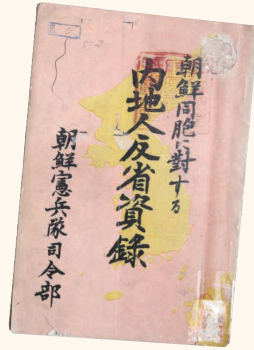 朝鮮同胞に對する
内地人反省資錄
朝鮮憲兵隊司令部